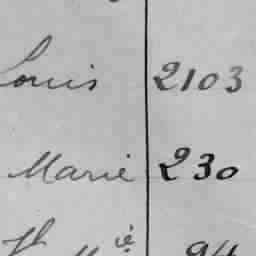 Louis 2103
Marie 230
94